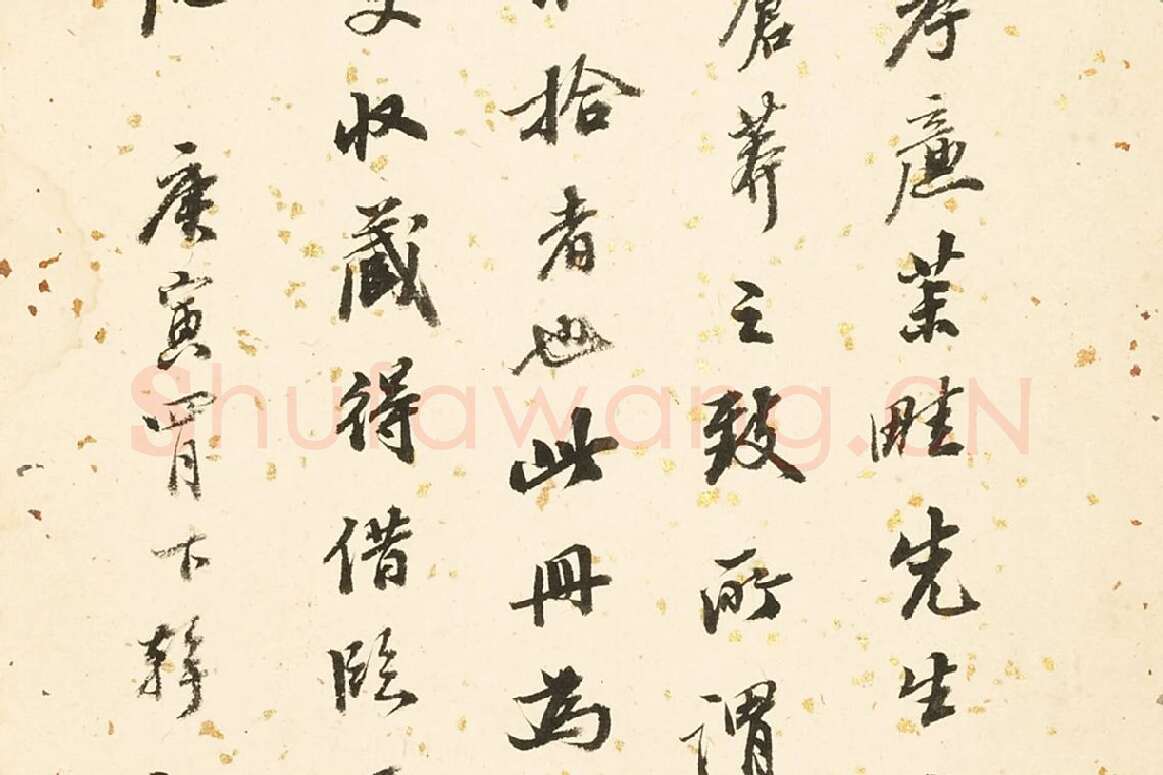 孝廉茉畦先生
蒼莽之致所謂
拾者也此冊為
收藏得借臨
庚寘四月下澣
Shufawang.CN